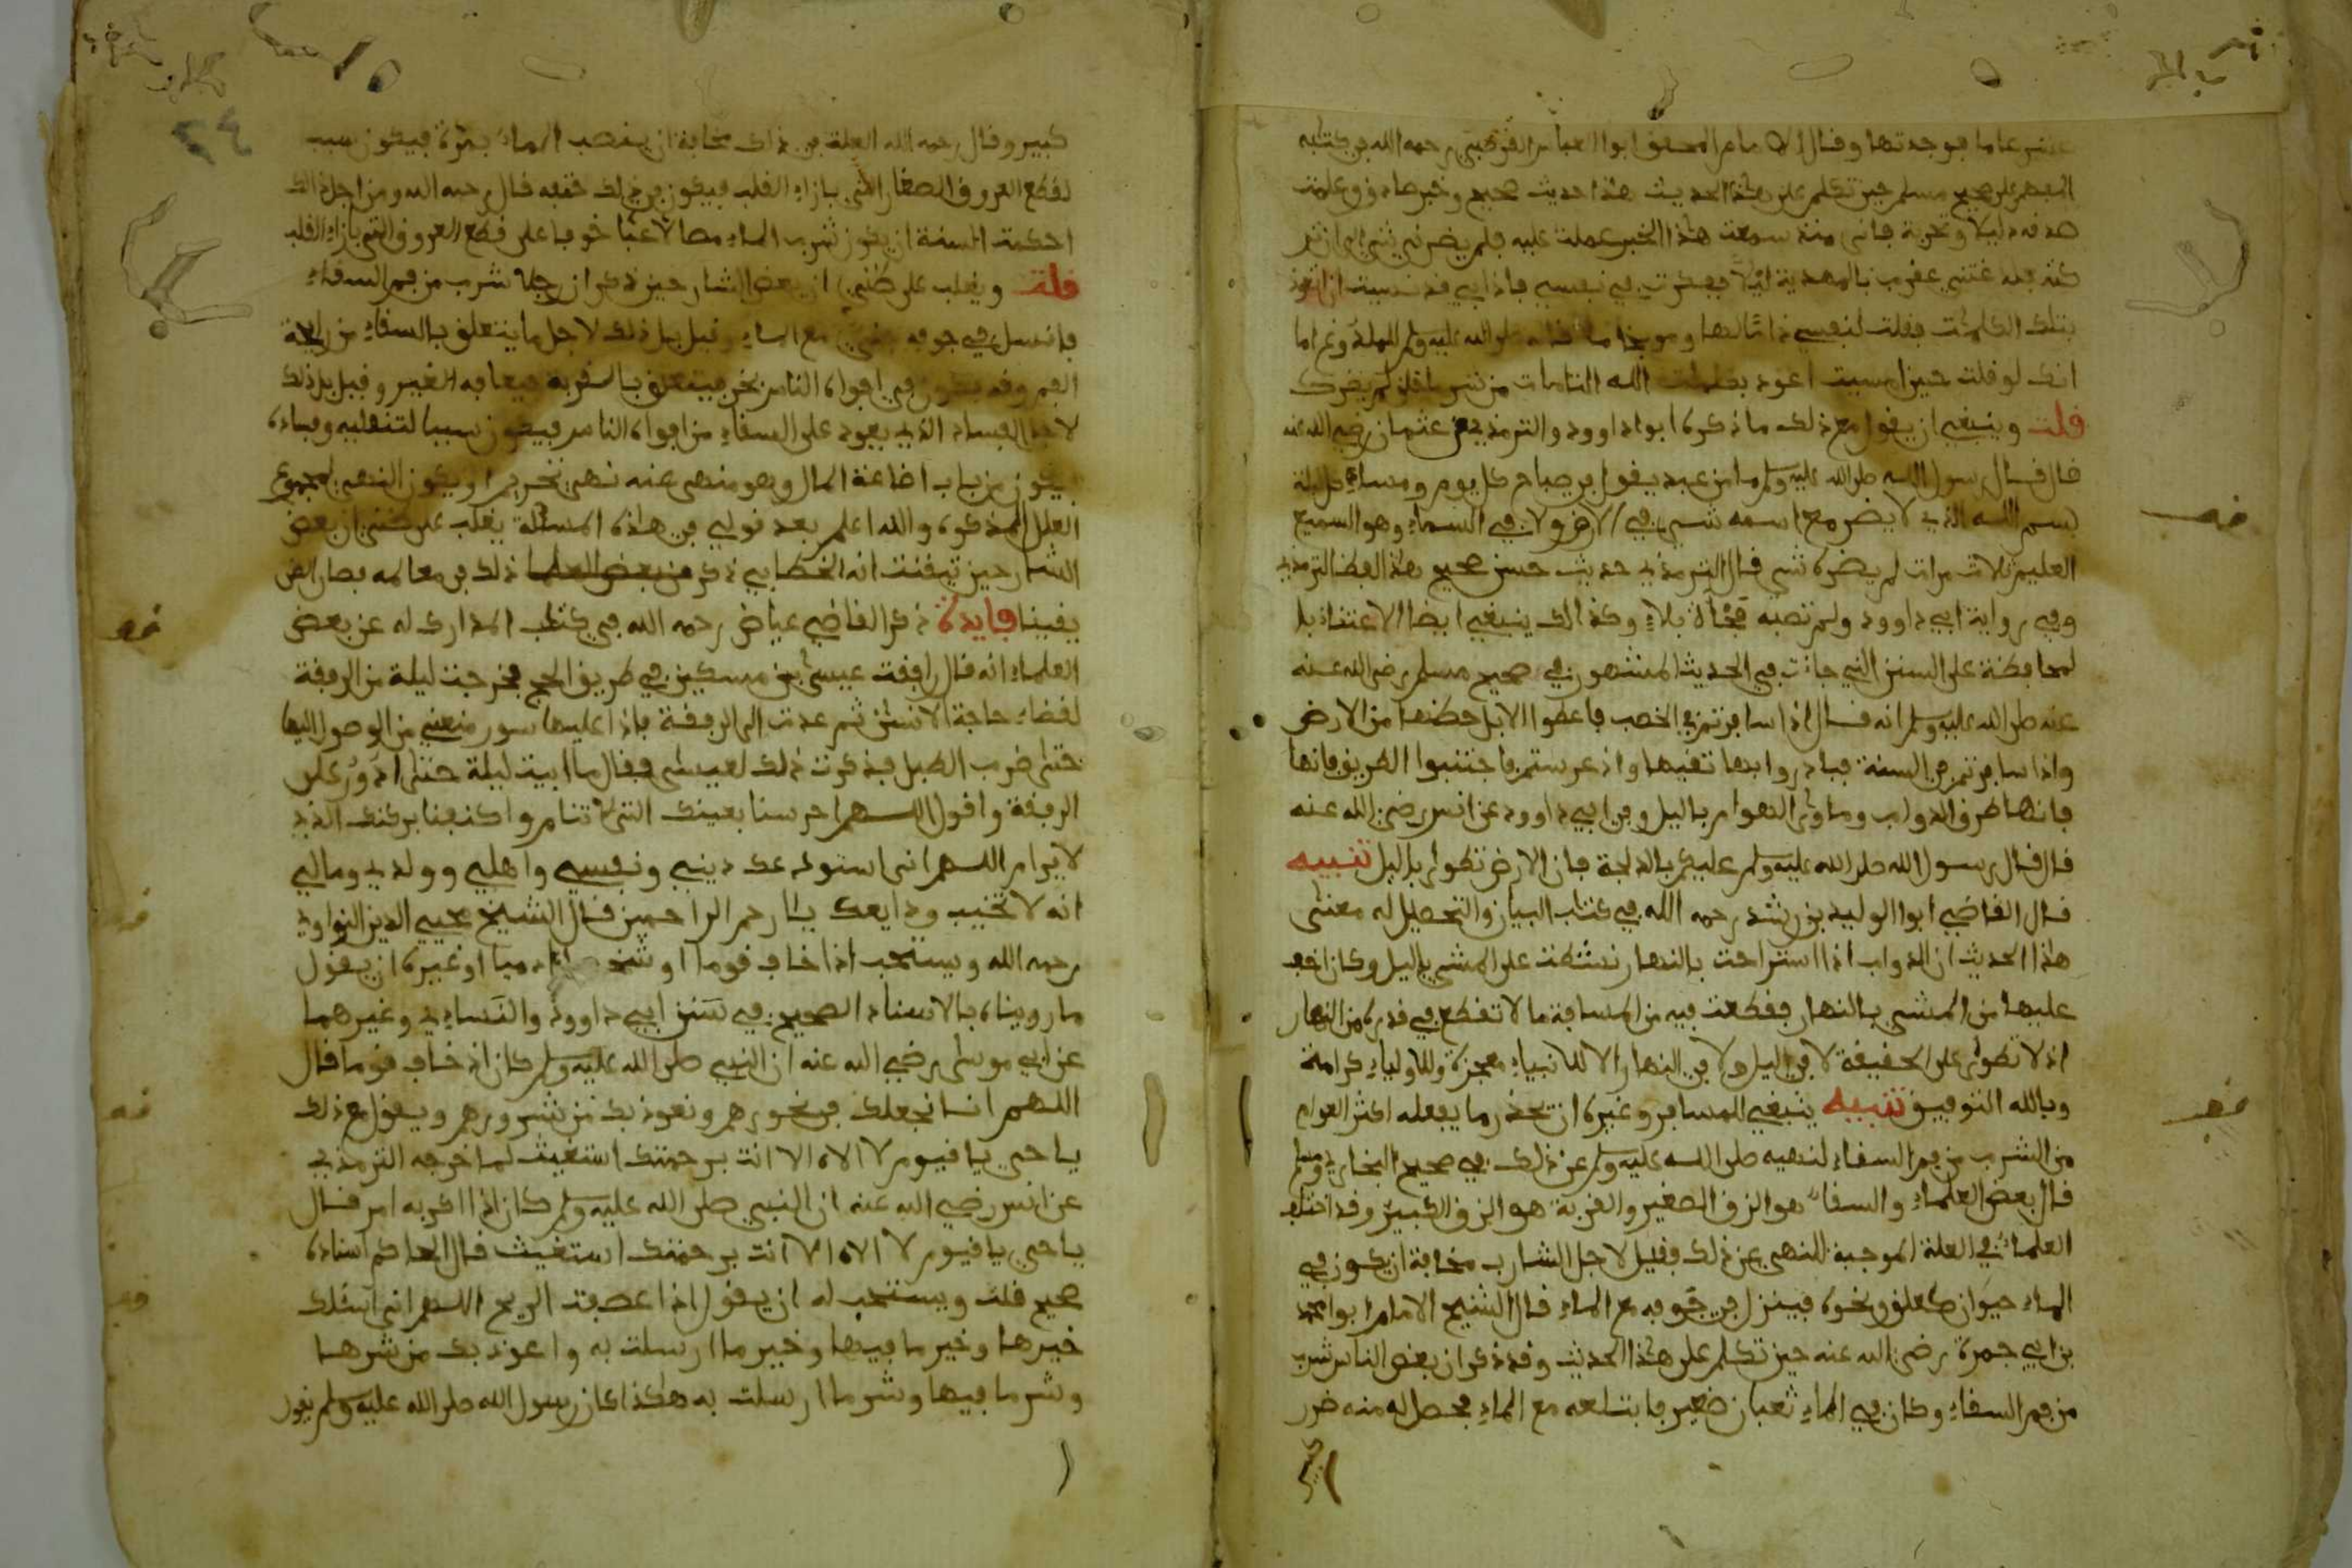 عاما فوجدتها وقال الامام المحقق ابوا العباس القرطبي رحمه الله في كتابه
المفهم على صحيح مسلم حين تكلم على هذا الحديث هذا حديث صحيح وخبر صادق وعلمت
صدقه دليلا وتجربة فاني منذ سمعت هذا الخبر عملت عليه فلم يضرني شيء الى ان
عقرب بالمهدية ليلا ففكرت في نفسي فاذا بي قد نسيت ان اتعوذ
بتلك الكلمات فقلت لنفسي ذاما لها وموبخا ما قاله صلى الله عليه وسلم للملدوغ اما
انك لو قلت حين امسيت اعوذ بكلمات الله التامات من شر ما خلق لم يضرك
قلت وينبغي ان يقول مع ذلك ما ذكره ابوا داوود والترمذي عن عثمان رضي الله عنه
قال قال رسول الله صلى الله عليه وسلم ما من عبد يقول في صباح كل يوم ومساء كل ليلة
بسم الله الذي لا يضر مع اسمه شيء في الارض ولا في السماء وهو السميع
العليم ثلاث مرات لم يضره شيء قال الترمذي حديث حسن صحيح هذا لفظ الترمذي
وفي رواية ابي داوود ولم تصبه فجأة بلاء وكذالك ينبغي ايضا الاعتناء بال
لمحافظة على السنن التي جاءت في الحديث المشهور في صحيح مسلم رضي الله عنه
عنه صلى الله عليه وسلم انه قال اذا سافرتم في الخصب فاعطوا الابل حظها من الارض
واذا سافرتم في السنة فبادروا بها نقيها واذ عرستم فاجتنبوا الطريق فانها
فانها طرق الدواب وماوى الهوام باليل وفي ابي داوود عن انس رضي الله عنه
قال قال رسول الله صلى الله عليه وسلم عليكم بالدلجة فان الارض تطوى باليل تنبيه
قال القاضي ابوا الوليد بن رشد رحمه الله في كتاب البيان والتحصيل له معنى
هذا الحديث ان الدواب اذا استراحت بالنهار نشطت على المشي باليل وكان اخف
عليها من المشي بالنهار فقطعت فيه من المسافة ما لا تقطع في قدره من النهار
اذ لا تطوى على الحقيقة لا في اليل ولا في النهار الا للانبياء معجزة وللاولياء كرامة
وبالله التوفيق تنبيه ينبغي للمسافر وغيره ان يحذر ما يفعله اكثر العوام
من الشرب من فم السقاء لنهيه صلى الله عليه وسلم عن ذلك في صحيح البخاري ومسلم
قال بعض العلماء والسقاء هو الزق الصغير والقربة هو الزق الكبير وقد اختلف
العلماء في العلة الموجبة للنهي عن ذلك فقيل لاجل الشارب مخافة ان يكون في
الماء حيوان كعلق ونحوه فينزل في جوفه مع الماء قال الشيخ الامام ابوا محمد
بن ابي جمرة رضي الله عنه حين تكلم على هذا الحديث وقد ذكر ان بعض الناس شرب
من فم السقاء وكان في الماء ثعبان صغير فابتلعه مع الماء فحصل له منه ضرر
كبير وقال رحمه الله العلة في ذلك مخافة ان ينصب الماء بمرة فيكون سبب
لقطع العروق الصغار التي بازاء القلب فيكون في ذلك حتفه قال رحمه الله ومن اجل ذالك
احكمت السنة ان يكون شرب الماء مصا لا عبا خوفا على قطع العروق التي بازاء القلب
قلت ويغلب على ظني ان بعض الشارحين ذكر ان رجلا شرب من فم السقاء
فانسل في جوفه مع الماء وقيل بل ذلك لاجل ما يتعلق بالسقاء من رايحة
الفم وقد يكون في افواه الناس بخر فيتعلق بالقربة فيعافه الغير وقيل بل ذلك
لاجل الفساد الذي يعود على السقاء من افواه الناس فيكون سببا لتنقليه وفساده
فيكون من باب اضاعة المال وهو منهى عنه نهي تحريم او يكون النهي لمجموع
العلل المذكوره والله اعلم بعد قولي في هذه المسئلة يغلب على ظني ان بعض
الشارحين تيقنت انه الخطابي ذكر من بعض العلما ذلك في معالمه فصار الظن
يقينا فايدة ذكر القاضي عياض رحمه الله في كتاب المدارك له عن بعض
العلماء انه قال رافقت عيسى بن مسكين في طريق الحج فخرجت ليلة من الرفقة
لقضاء حاجة الانسان ثم عدت الى الرفقة فاذا عليها سور منعني من الوصول اليها
حتى ضرب الطبل فذكرت ذلك لعيسى فقال ما ابيت ليلة حتى ادور على
الرفقة واقول اللهم احرسنا بعينك التي لا تنام واكنفنا بركنك الذي
لا يرام اللهم اني استودعك ديني ونفسي واهلي وولدي ومالي
انه لا تخيب ودايعك يا ارحم الراحمين قال الشيخ محيي الدين النواوي
رحمه الله ويستحب اذا خاف قوما او شخصا ادميا او غيره ان يقول
ما رويناه بالاسناد الصحيح في سنن ابي داوود والنساءي وغيرهما
عن ابي موسى رضي الله عنه ان النبي صلى الله عليه وسلم كان اذ خاف قوما قال
اللهم انا نجعلك في نحورهم ونعوذ بك من شرورهم ويقول مع ذلك
يا حي يا قيوم لا الاه الا انت برحمتك استغيث لما خرجه الترمذي
عن انس رضي الله عنه ان النبي صلى الله عليه وسلم كان اذا اكربه امر قال
يا حي يا قيوم لا الاه الا انت برحمتك استغيث قال الحاكم اسناده
صحيح قلت ويستحب له ان يقول اذا عصفت الريح اللهم اني اسئلك
خيرها وخير ما فيها وخير ما ارسلت به واعوذ بك من شرها
وشر ما فيها وشر ما ارسلت به هكذا كان رسول الله صلى الله عليه وسلم يقول